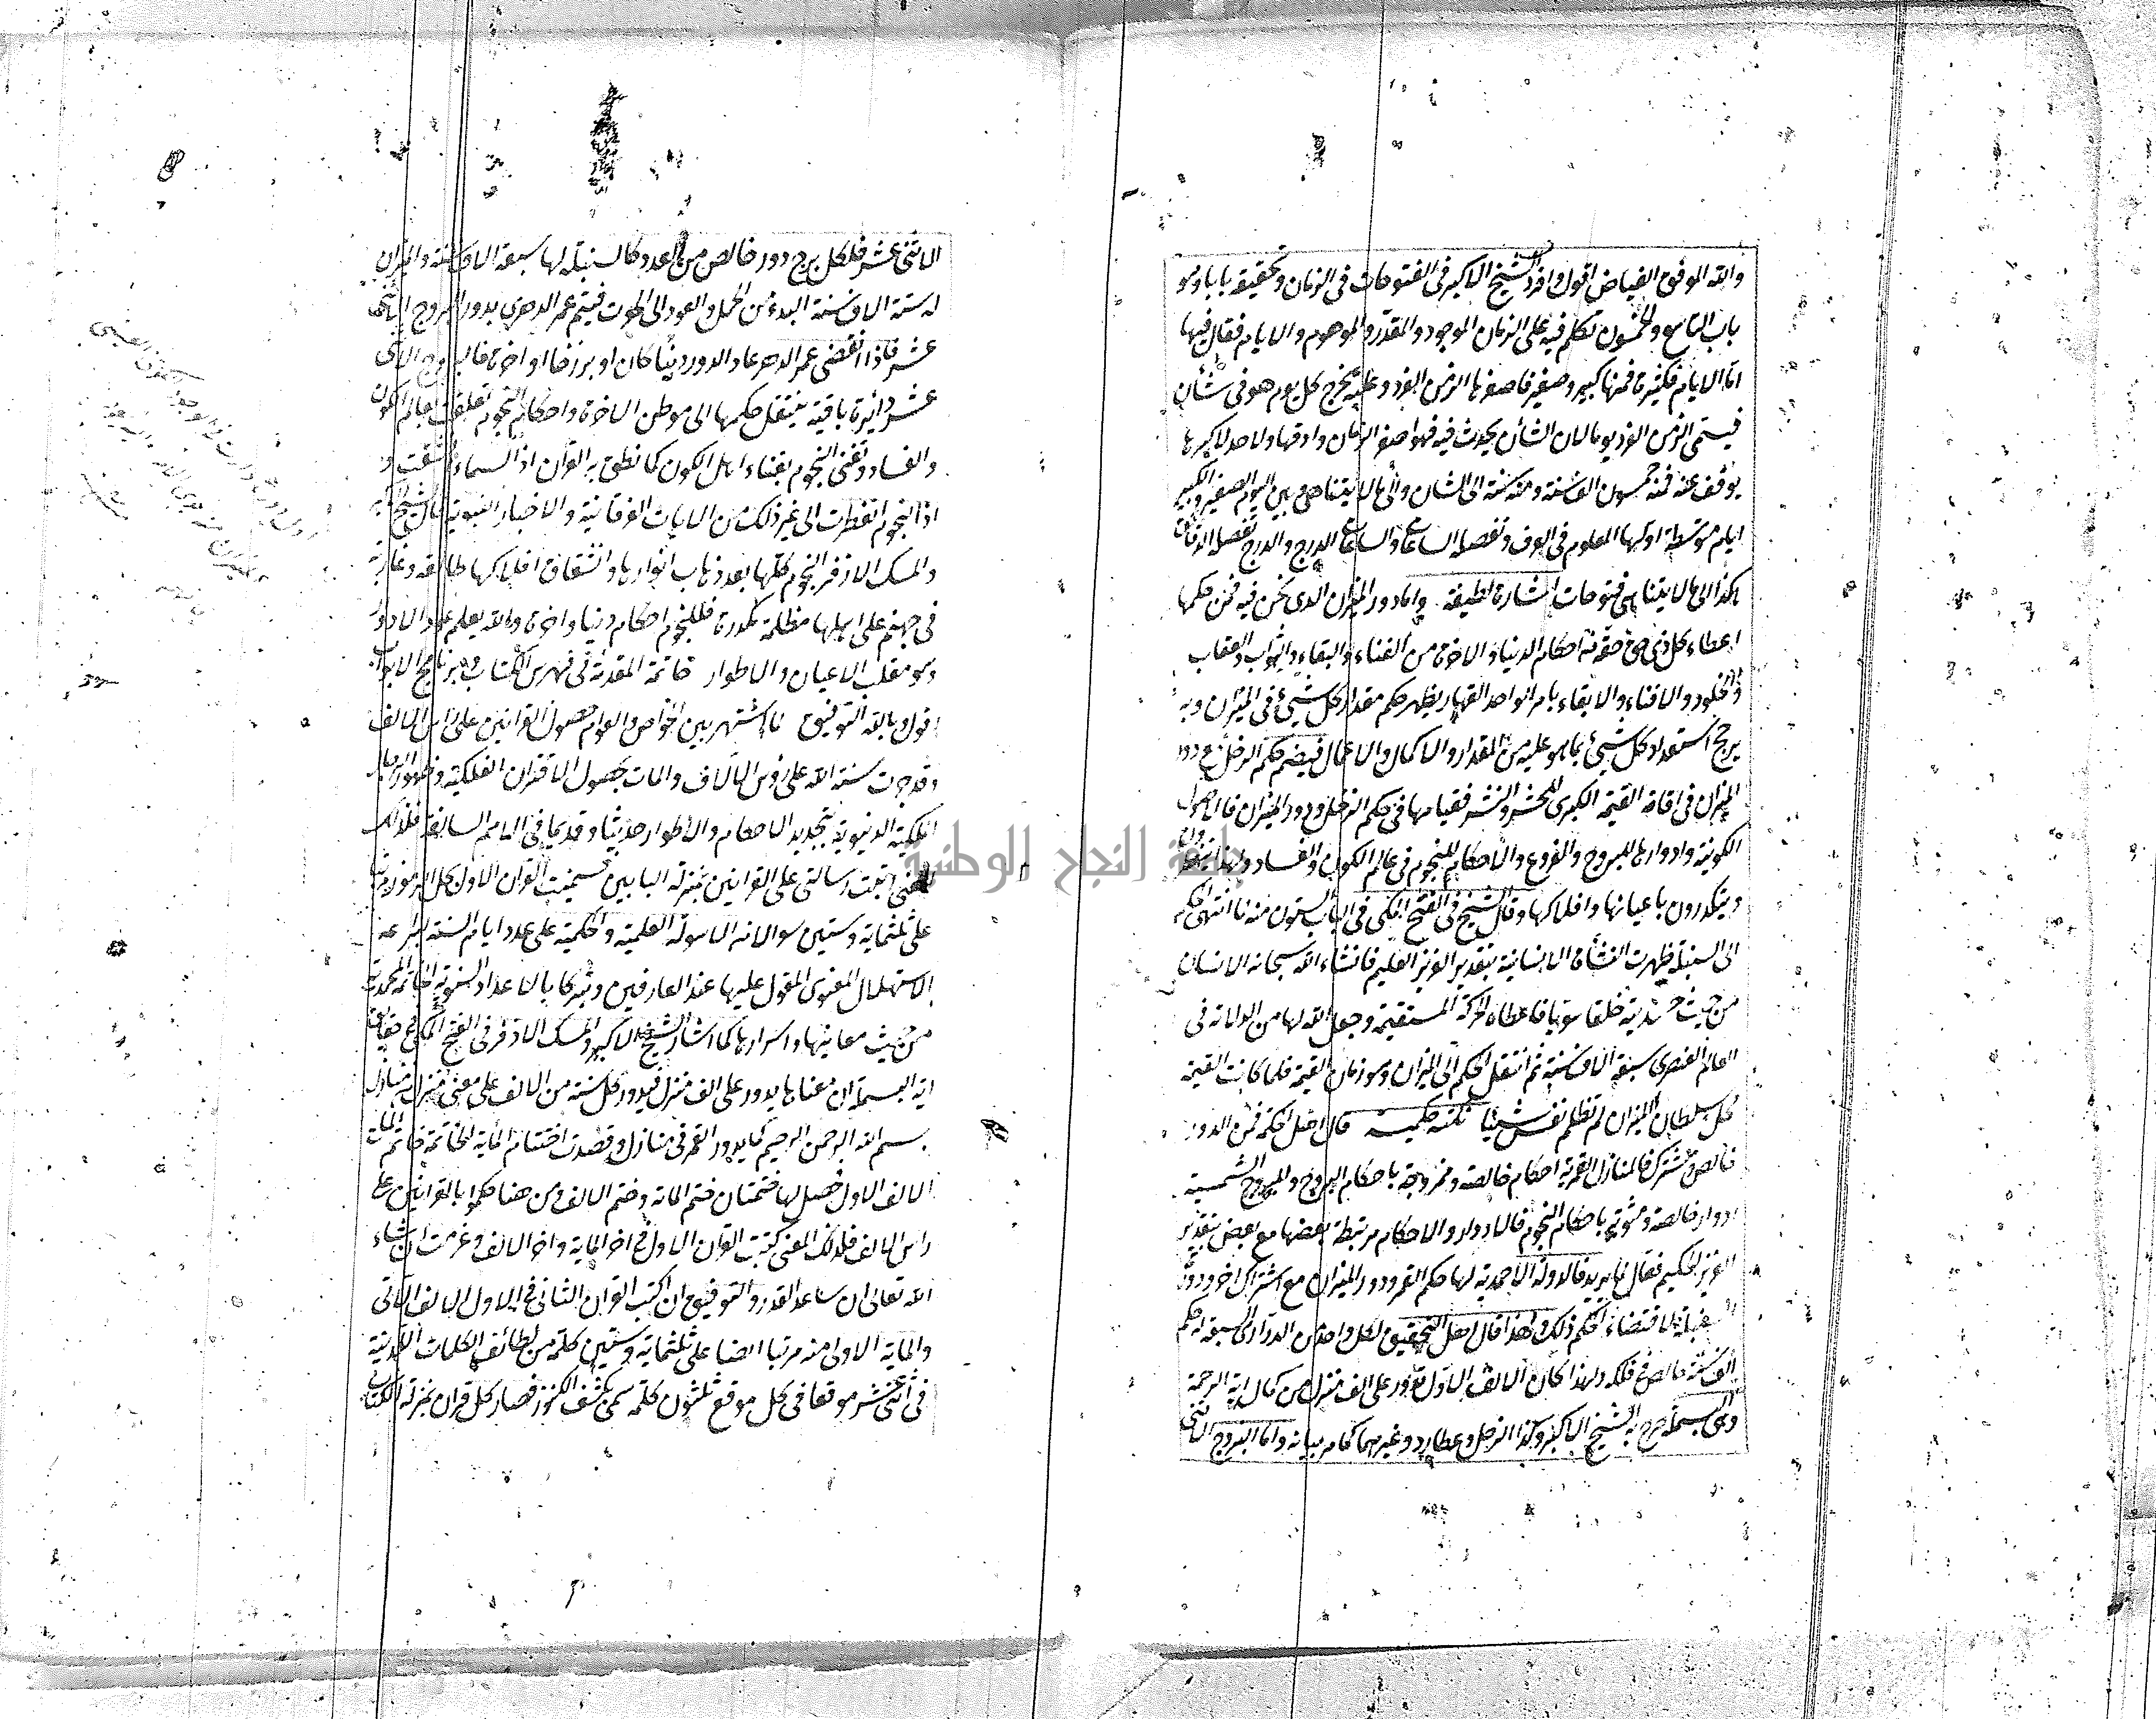 والله الموفق الفياض اقول وافرد الشيخ الاكبر في الفتوحات في الزمان وتحقيقه بابا وهو
باب التاسع والخمسون تكلم فيه على الزمان الموجود والمقدر والموهوم والايام فقال فيها
اما الايام فكثيرة فمنها كبير وصغير فاصغرها الزمن الفرد وعليه يخرج كل يوم هو في شأن
فيسمى الزمن الفرد يوما لان الشأن يحدث فيه فهو اصغر الزمان وادقها ولا حد لاكبرها
يوقف عنه فمنه خمسون الف سنة ومنه سنة الى الشان والى ما لا يتناهى وبين اليوم الصغير والكبير
ايام متوسطة اولها المعلوم في العرف وتفصله الساعات والساعات الدرج والدرج تفصله الدقائق
هكذا الى ما لا يتناهى فتوحات اشارة لطيفة واما دور الميزان الذي نحن فيه فمن حكمها
اعطاء كل ذي حق حقه فيه احكام الدنيا والاخرة من الفناء والبقاء والثواب والعقاب
والخلود والافناء والابقاء بامر الواحد القهار يظهر حكم مقدار كل شيئ في الميزان وبه
يرجح استعداد كل شيئ بما هو عليه من المقدار والاكمال والاعمال فيضم حكم الزحل مع دور
الميزان في اقامة القيمة الكبرى للمحشر والنشر فقيامها في حكم الزحل ودور الميزان فالاصول
الكونية وادوارها للبروج والفروع والاحكام للنجوم في عالم الكون والفساد ولهذا
ويتكدرون باعيانها وافلاكها وقال الشيخ في الفتح المكي في الباب الستون منه لما انتهى الحكم
الى السنبلة ظهرت النشأة الانسانية بتقدير العزيز العليم فانشاء الله سبحانه الانسان
من حيث جسديته خلقا سويا فاعطاه الحركة المستقيمة وجعل الله لها من الولاية في
العالم العنصري سبعة الاف سنة ثم انتقل الحكم الى الميزان وهو زمان القيمة فلما كانت القيمة
محل سلطان الميزان لم تظلم نفس شيئا نكته حكمية قال اهل الحكمة فمن الدور
خالص ومشترك فالمنازل القمرية احكام خالصة وممزوجة باحكام البروج وللبروج الشمسية
ادوار خالصة ومشوبة باحكام النجوم فالادوار والاحكام مرتبطة بعضها مع بعض بتقدير
العزيز الحكيم فعال لما يريد فالدولة الاحمدية لها حكم القمر ودور الميزان مع اشتراك اخر ودور
لاقتضاء الحكم ذلك ولهذا قال اهل التحقيق لكل واحد من الدراري السبعة حكم
الف سنة خالص في فلكه ولهذا كان الالف الاول يدور على الف منزل من كمال اية الرحمة
وهي البسملة صرح به الشيخ الاكبر وكذا الزحل وعطارد وغيرهما كما مر بيانه واما البروج الاثني
الاثني عشر فلكل برج دور خالص من العدد كالسنبلة لها سبعة الاف سنة والميزان
له ستة الاف سنة البدء من الحمل والعود الى الحوت فيتم عمر الدهري بدور البروج الاثني
عشر فاذا انقضى عمر الدهر عاد الدور دنيا كان او برزخا او اخرة فالبروج الاثني
عشر دائرة باقية ينتقل حكمها الى موطن الاخرة واحكام النجوم تعلقت بعالم الكون
والفساد وتفنى النجوم بفناء اهل الكون كما نطق به القرآن اذا السماء انشقت و
اذا النجوم انفطرت الى غير ذلك من الايات الفرقانية والاخبار النبوية قال الشيخ الاكبر
والمسك الاذفر النجوم كلها بعد ذهاب انوارها وانشقاق افلاكها طالعة وغاربة
في جهنم على اهلها مظلمة مكدرة فللنجوم احكام دنيا واخرة والله يعلم عدد الادوار
وهو مقلب الاعيان والاطوار خاتمة المقدمة في فهرس الكتاب وبرنامج الابواب
اقول وبالله التوفيق لما اشتهر بين الخواص والعوام حصول القرانين على راس الالف
وقد جرت سنة الله على رؤس الالاف والمات بحصول الاقتران الفلكية وظهور
الملكية الدنيوية بتجديد الاحكام والاطوار حديثا وقديما في الامم السابقة فلذلك
المعنى رتبت رسالتي على القرانين بمنزلة البابين سميت القران الاول بحل الرموز مرتبا
على ثلثماية وستين سوالا من الاسولة العلمية والحكمية على عدد ايام السنة لبراعة
الاستهلال المعنوى المقول عليها عند العارفين وتبركا بالاعداد السنوية الخاتمة المحمدية
من حيث معانيها واسرارها كما اشار الشيخ الاكبر والمسك الاذفر في الفتح المكي في حقايق
اية البسملة ان معناها يدور على الف منزل فيدور كل سنة من الالف على معنى منزل منازل
بسم الله الرحمن الرحيم كما يدور القمر في منازل وقصدت اختتام الماية الخاتمة خاتم المات
الالف الاول فحصل لها ختمتان ختم الماية وختم الالف ومن هنا حكموا بالقرانين على
راس الالف فلذلك المعنى كتبت القران الاول في اخر الماية واخر الالف وعزمت ان شاء
الله تعالى ان ساعد القدر والتوفيق ان اكتب القران الثاني في الاول الالف الاتي
والماية الاولى منه مرتبا ايضا على ثلثماية وستين كلمة من لطائف الكلمات اللدنية
في اثني عشر موقعا في كل موقع ثلثون كلمة سمى بكشف الكنوز فصار كل قران بمنزلة الكتاب
جامعة النجاح الوطنية